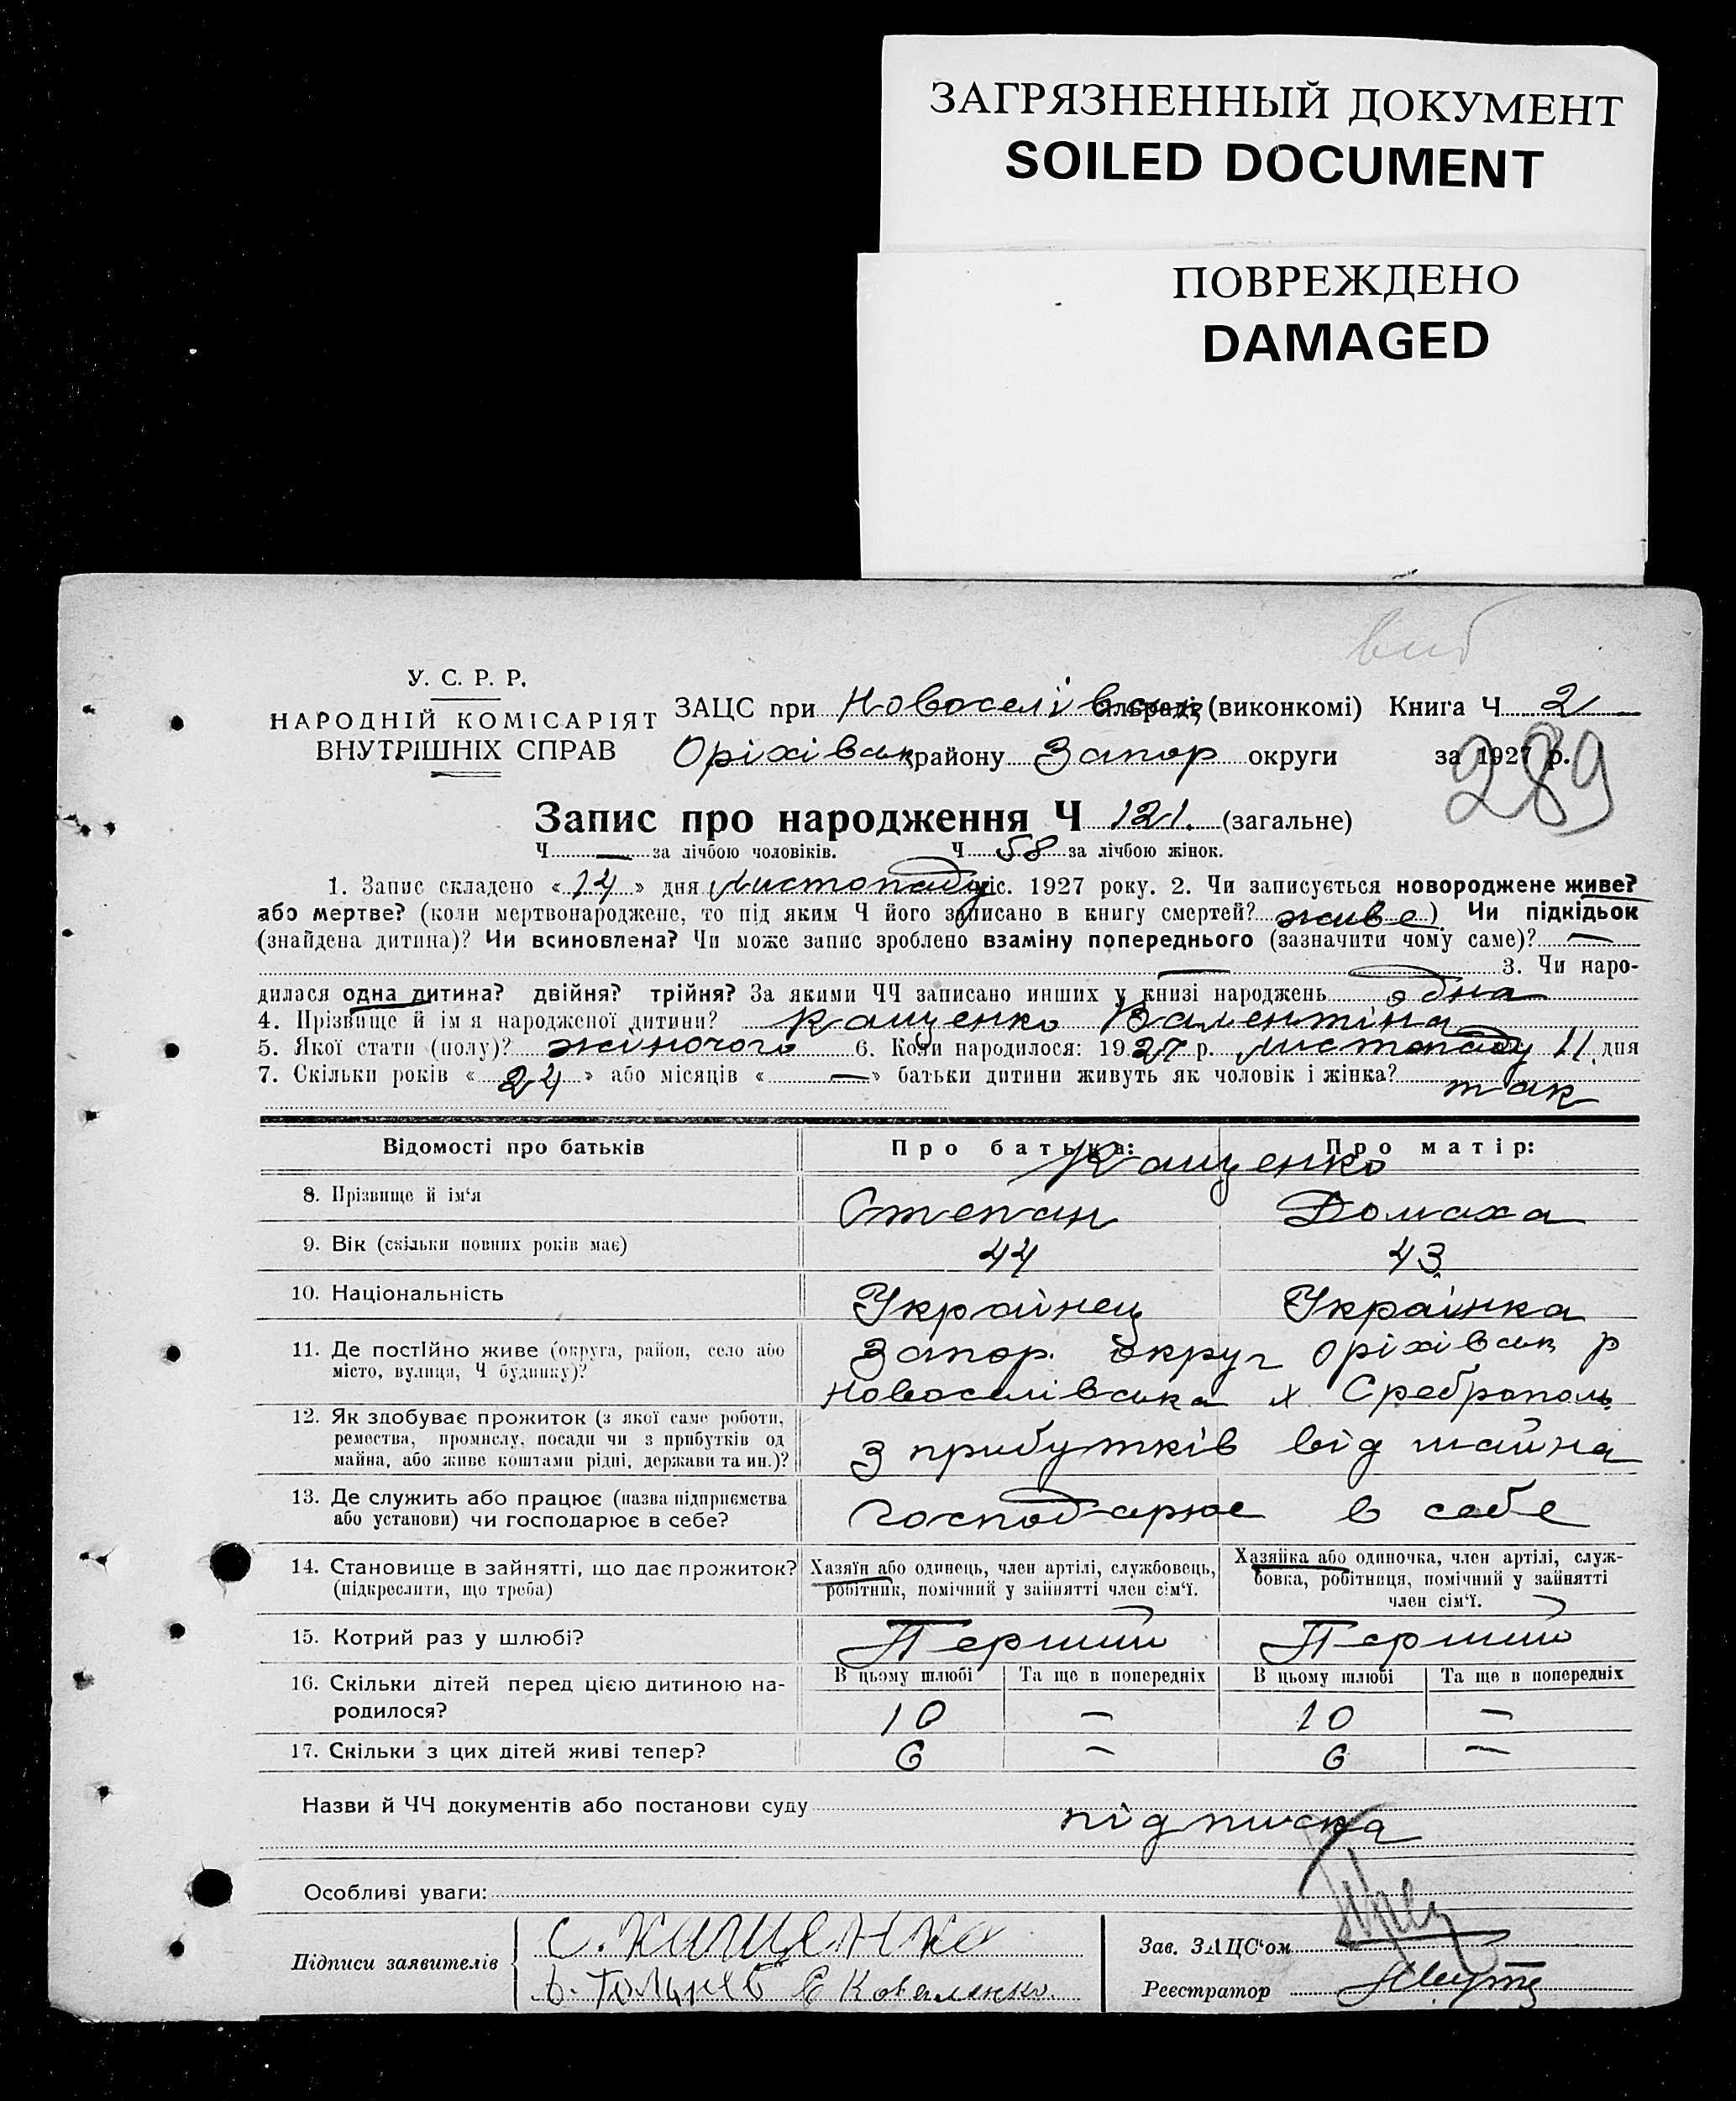 ЗАГРЯЗНЕННЫЙ ДОКУМЕНТ
SOILED DOCUMENT
ПОВРЕЖДЕНО
DAMAGED
вид
У. С. Р. Р.
НАРОДНІЙ КОМІСАРІЯТ
ВНУТРІШНІХ СПРАВ
ЗАЦС при Новоселівськ сільраді (виконкомі) Книга Ч 2
Оріхівськ району Запор округи за 1927 р.
289
Запис про народження Ч 121. (загальне)
Ч — за лічбою чоловіків. Ч 58 за лічбою жінок.
1. Запис складено «14» дня Листопаду міс. 1927 року. 2. Чи записується новороджене живе?
або мертве? (коли мертвонароджене, то під яким Ч його записано в книгу смертей? живе) Чи підкідьок
(знайдена дитина)? Чи всиновлена? Чи може запис зроблено взаміну попереднього (зазначити чому саме)? —
— 3. Чи наро-
дилася одна дитина? двійня? трійня? За якими ЧЧ записано инших у книзі народжень одна
4. Прізвище й ім'я народженої дитини? Кащенко Валентіна
5. Якої стати (полу)? жіночого 6. Коли народилося: 1927 р. Листопаду 11. дня
7. Скільки років «24» або місяців «—» батьки дитини живуть як чоловік і жінка? так
Відомості про батьків Про батька: Про матір:
Кащенко
8. Прізвище й ім'я Степан Домаха
9. Вік (скільки повних років має) 44 43
10. Національність Українець Українка
11. Де постійно живе (округа, район, село або Запор. округ Оріхівськ р
місто, вулиця, Ч будинку)? Новоселівська х Среброполь
12. Як здобуває прожиток (з якої саме роботи,
ремества, промислу, посади чи з прибутків од
майна, або живе коштами рідні, держави та ин.)? з прибутків від майна
13. Де служить або працює (назва підприємства
або установи) чи господарює в себе? господарює в себе
14. Становище в зайнятті, що дає прожиток? Хазяїн або одинець, член артілі, службовець, Хазяйка або одиночка, член артілі, служ-
(підкреслити, що треба) робітник, помічний у зайнятті член сім'ї. бовка, робітниця, помічний у зайнятті
член сім'ї.
15. Котрий раз у шлюбі? Перший Перший
16. Скільки дітей перед цією дитиною на- В цьому шлюбі Та ще в попередніх В цьому шлюбі Та ще в попередніх
родилося? 10 — 10 —
17. Скільки з цих дітей живі тепер? 6 — 6 —
Назви й ЧЧ документів або постанови суду підписка
Особливі уваги:
Підписи заявителів С. Кащенко
Е Коваленко.
Зав. ЗАЦС'ом
Реєстратор